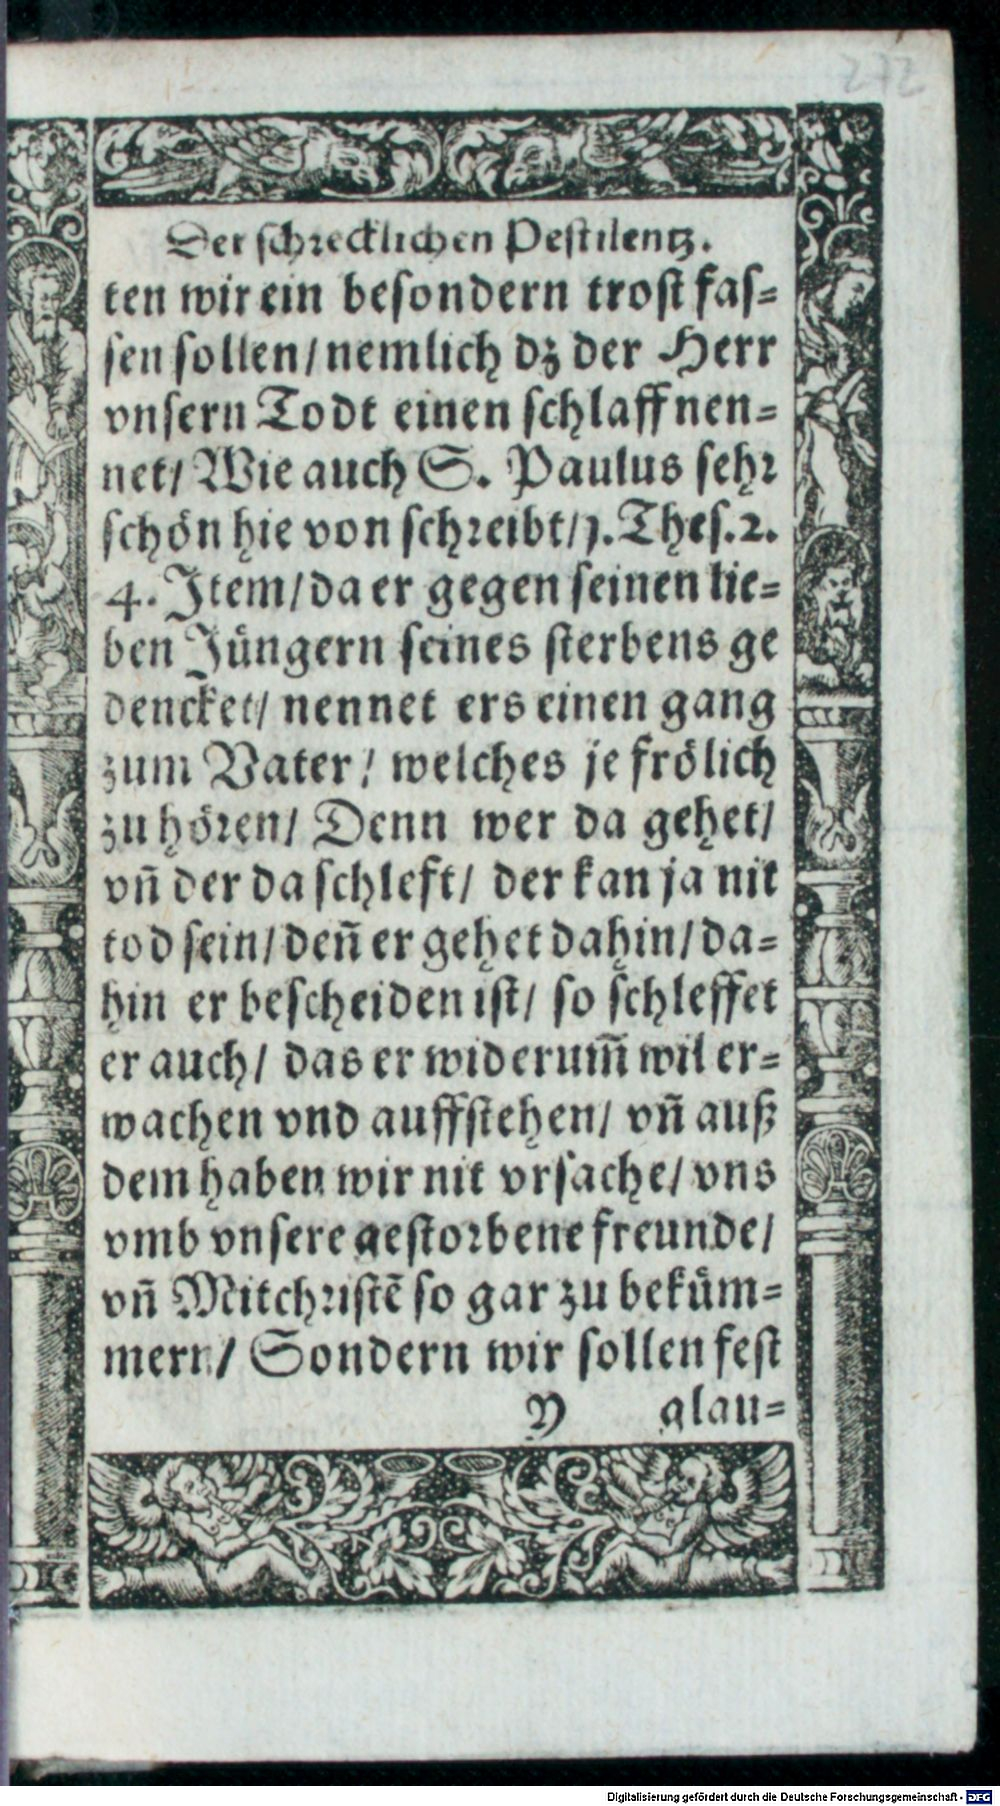 272
Der schrecklichen Pestilentz.
ten wir ein besondern trost fas-
sen sollen/ nemlich dz der Herr
vnsern Todt einen schlaff nen-
net/ Wie auch S. Paulus sehr
schön hie von schreibt/ 1. Thes. 2.
4. Item/ da er gegen seinen lie-
ben Jüngern seines sterbens ge
dencket/ nennet ers einen gang
zum Vater/ welches je frölich
zu hören/ Denn wer da gehet/
vñ der da schleft/ der kan ja nit
tod sein/ deñ er gehet dahin/ da-
hin er bescheiden ist/ so schleffet
er auch/ das er widerum̃ wil er-
wachen vnd auffstehen/ vñ auß
dem haben wir nit vrsache/ vns
vmb vnsere gestorbene freunde/
vñ Mitchristẽ so gar zu beküm-
mern/ Sondern wir sollen fest
Y glau-
Digitalisierung gefördert durch die Deutsche Forschungsgemeinschaft - DFG